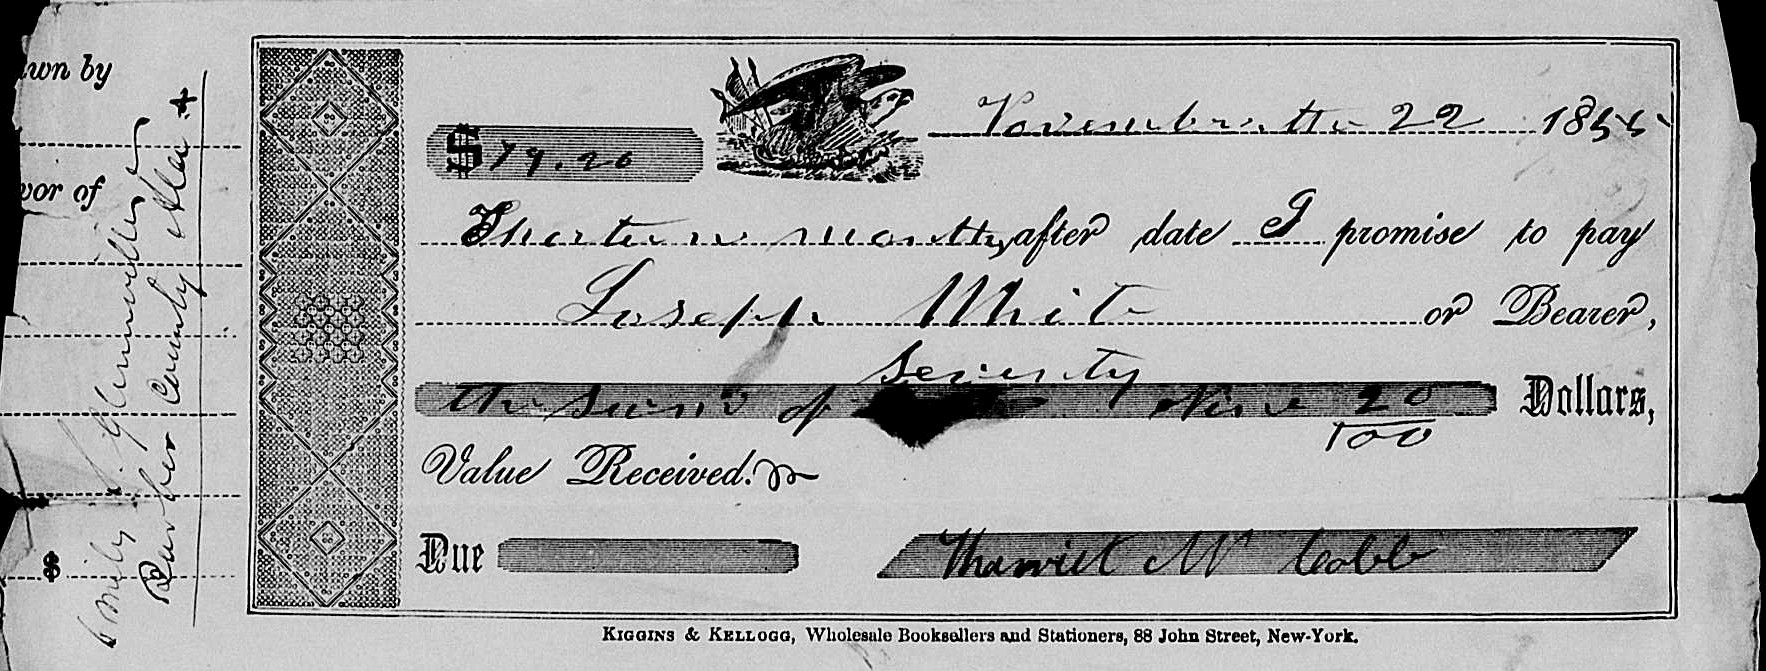 awn by
vor of
$
6 miles S. Glennville
Barber County Ala
$ 79.20
November the 22 1855
Thirteen months after date I promise to pay
Joseph White or Bearer,
seventy
the sum of Nine 20/100 Dollars,
Value Received.
Due Harriet M Cobb
KIGGINS & KELLOGG, Wholesale Booksellers and Stationers, 88 John Street, New-York.